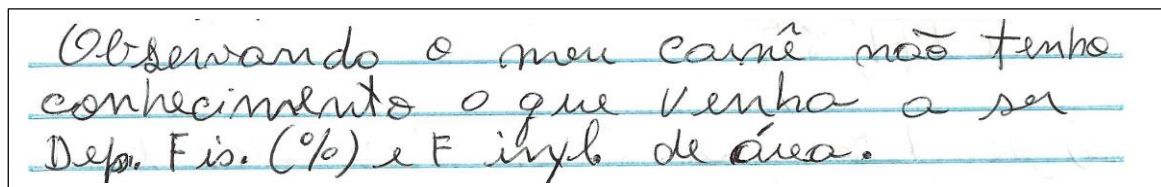 Observando o meu carnê não tenho
conhecimento o que venha a ser
Dep. Fis. (%) e F de área.